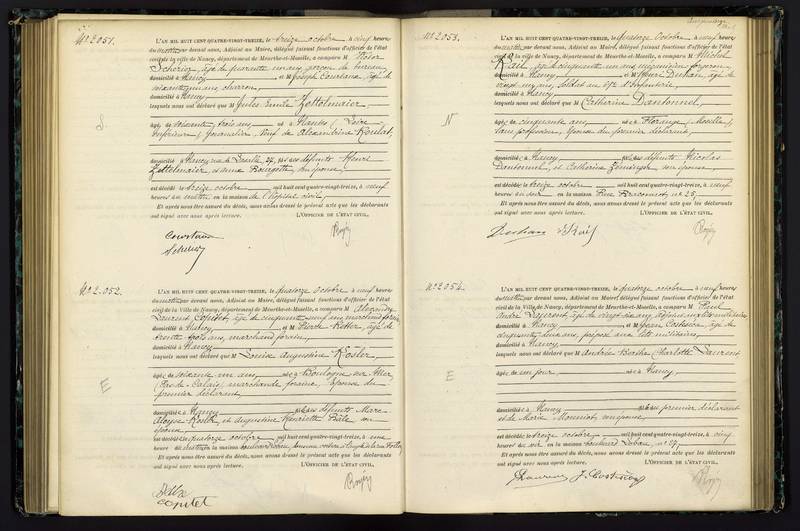 N° 2.051.
L'AN MIL HUIT CENT QUATRE-VINGT-TREIZE, le treize octobre à neuf heures
du matin par devant nous, Adjoint au Maire, délégué faisant fonctions d'officier de l'état
civil de la ville de Nancy, département de Meurthe-et-Moselle, a comparu M Victor
âgé de quarante un ans, garçon de bureau
domicilié à Nancy et M Joseph Courtaux âgé de
soixante un ans, charron,
domicilié à Nancy,
lesquels nous ont déclaré que M Jules Emile Zottelmaier,
âgé de soixante trois ans né à Nantes (Loire-
Inférieure) Journalier, Veuf de Alexandrine Roulat,
domicilié à Nancy rue 27, fils des défunts Henri
Zottelmaier et Anne Bourgette son épouse,
est décédé le treize octobre mil huit cent quatre-vingt-treize, à neuf
heures du matin en la maison de l'hôpital civil,
Et après nous être assuré du décès, nous avons dressé le présent acte que les déclarants
ont signé avec nous après lecture. L'OFFICIER DE L'ÉTAT CIVIL,
Courtaux
N° 2.052.
L'AN MIL HUIT CENT QUATRE-VINGT-TREIZE, le quatorze octobre à neuf heures
du matin par devant nous, Adjoint au Maire, délégué faisant fonctions d'officier de l'état
civil de la Ville de Nancy, département de Meurthe-et-Moselle, a comparu M Alexandre
Laurent âgé de cinquante neuf ans, marchand forain,
domicilié à Nancy et M Pierre âgé de
trente trois ans, marchand forain,
domicilié à Nancy
lesquels nous ont déclaré que M Louise Augustine Rosler,
E
âgée de soixante un ans née à Boulogne sur Mer
(Pas-de-Calais) marchande foraine, Epouse du
premier déclarant
domiciliée à Nancy fille des défunts Marc
Aloyse Rosler et Augustine Henriette son
épouse
est décédée le quatorze octobre mil huit cent quatre-vingt-treize, à une
heure du matin en la maison
Et après nous être assuré du décès, nous avons dressé le présent acte que les déclarants
ont signé avec nous après lecture. L'OFFICIER DE L'ÉTAT CIVIL,
N° 2053.
L'AN MIL HUIT CENT QUATRE-VINGT-TREIZE, le quatorze octobre à neuf heures
du matin par devant nous, Adjoint au Maire, délégué faisant fonctions d'officier de l'état
civil de la ville de Nancy, département de Meurthe-et-Moselle, a comparu M Michel
âgé de cinquante un ans forgeron,
domicilié à Nancy et M Henri âgé de
vingt un ans, soldat au d'Infanterie,
domicilié à Nancy
lesquels nous ont déclaré que M Catherine Dantonnel,
N
âgée de cinquante ans née à Florange (Moselle)
sans profession, épouse du premier déclarant,
domiciliée à Nancy fille des défunts Nicolas
Dantonnel, et Catherine son épouse,
est décédée le treize octobre mil huit cent quatre-vingt-treize, à neuf
heures du soir en la maison Rue Braconnot, n° 25,
Et après nous être assuré du décès, nous avons dressé le présent acte que les déclarants
ont signé avec nous après lecture. L'OFFICIER DE L'ÉTAT CIVIL,
N° 2054.
L'AN MIL HUIT CENT QUATRE-VINGT-TREIZE, le quatorze octobre à neuf heures
du matin par devant nous, Adjoint au Maire, délégué faisant fonctions d'officier de l'état
civil de la Ville de Nancy, département de Meurthe-et-Moselle, a comparu M Paul
André Laurent, âgé de vingt six ans,
domicilié à Nancy et M Jean âgé de
cinquante deux ans, préposé aux lits militaires,
domicilié à Nancy,
lesquels nous ont déclaré que M Andrée Berthe Charlotte Laurent
E
âgée de un jour née à Nancy
domiciliée à Nancy fille du premier déclarant
et de Marie son épouse
est décédée le treize octobre mil huit cent quatre-vingt-treize, à cinq
heures du soir en la maison boulevard Lobau n° 27,
Et après nous être assuré du décès, nous avons dressé le présent acte que les déclarants
ont signé avec nous après lecture. L'OFFICIER DE L'ÉTAT CIVIL,